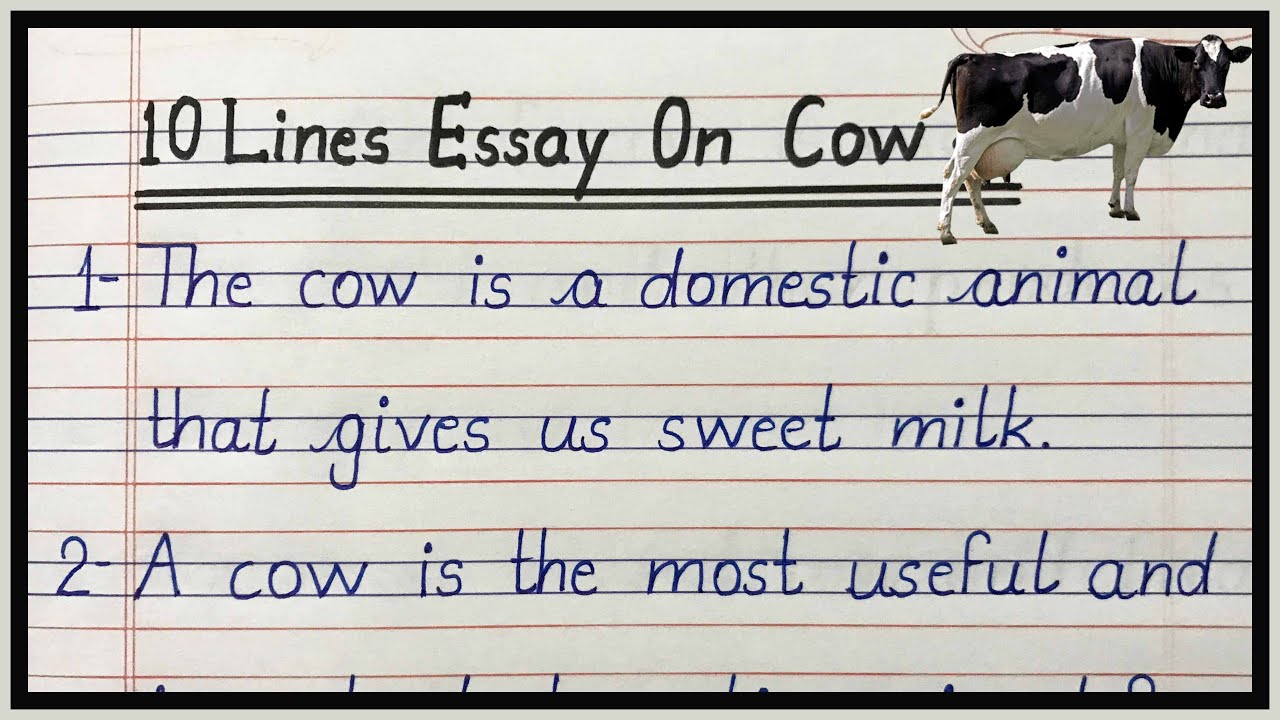 10 Lines Essay On Cow
1- The cow is a domestic animal
that gives us sweet milk.
2- A cow is the most useful and